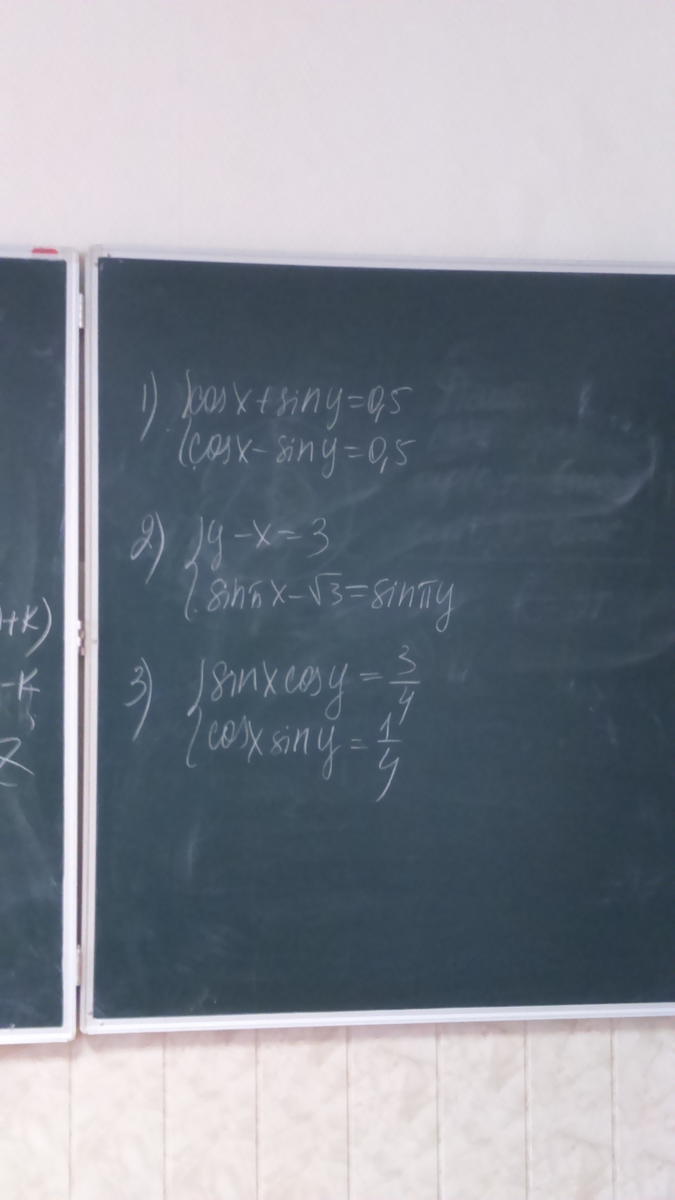 +k)
-k
Z
1) {cosx+siny=0,5
{cosx-siny=0,5
2) {y-x=3
{sinπx-√3=sinπy
3) {sinxcosy=3/4
{cosxsiny=1/4